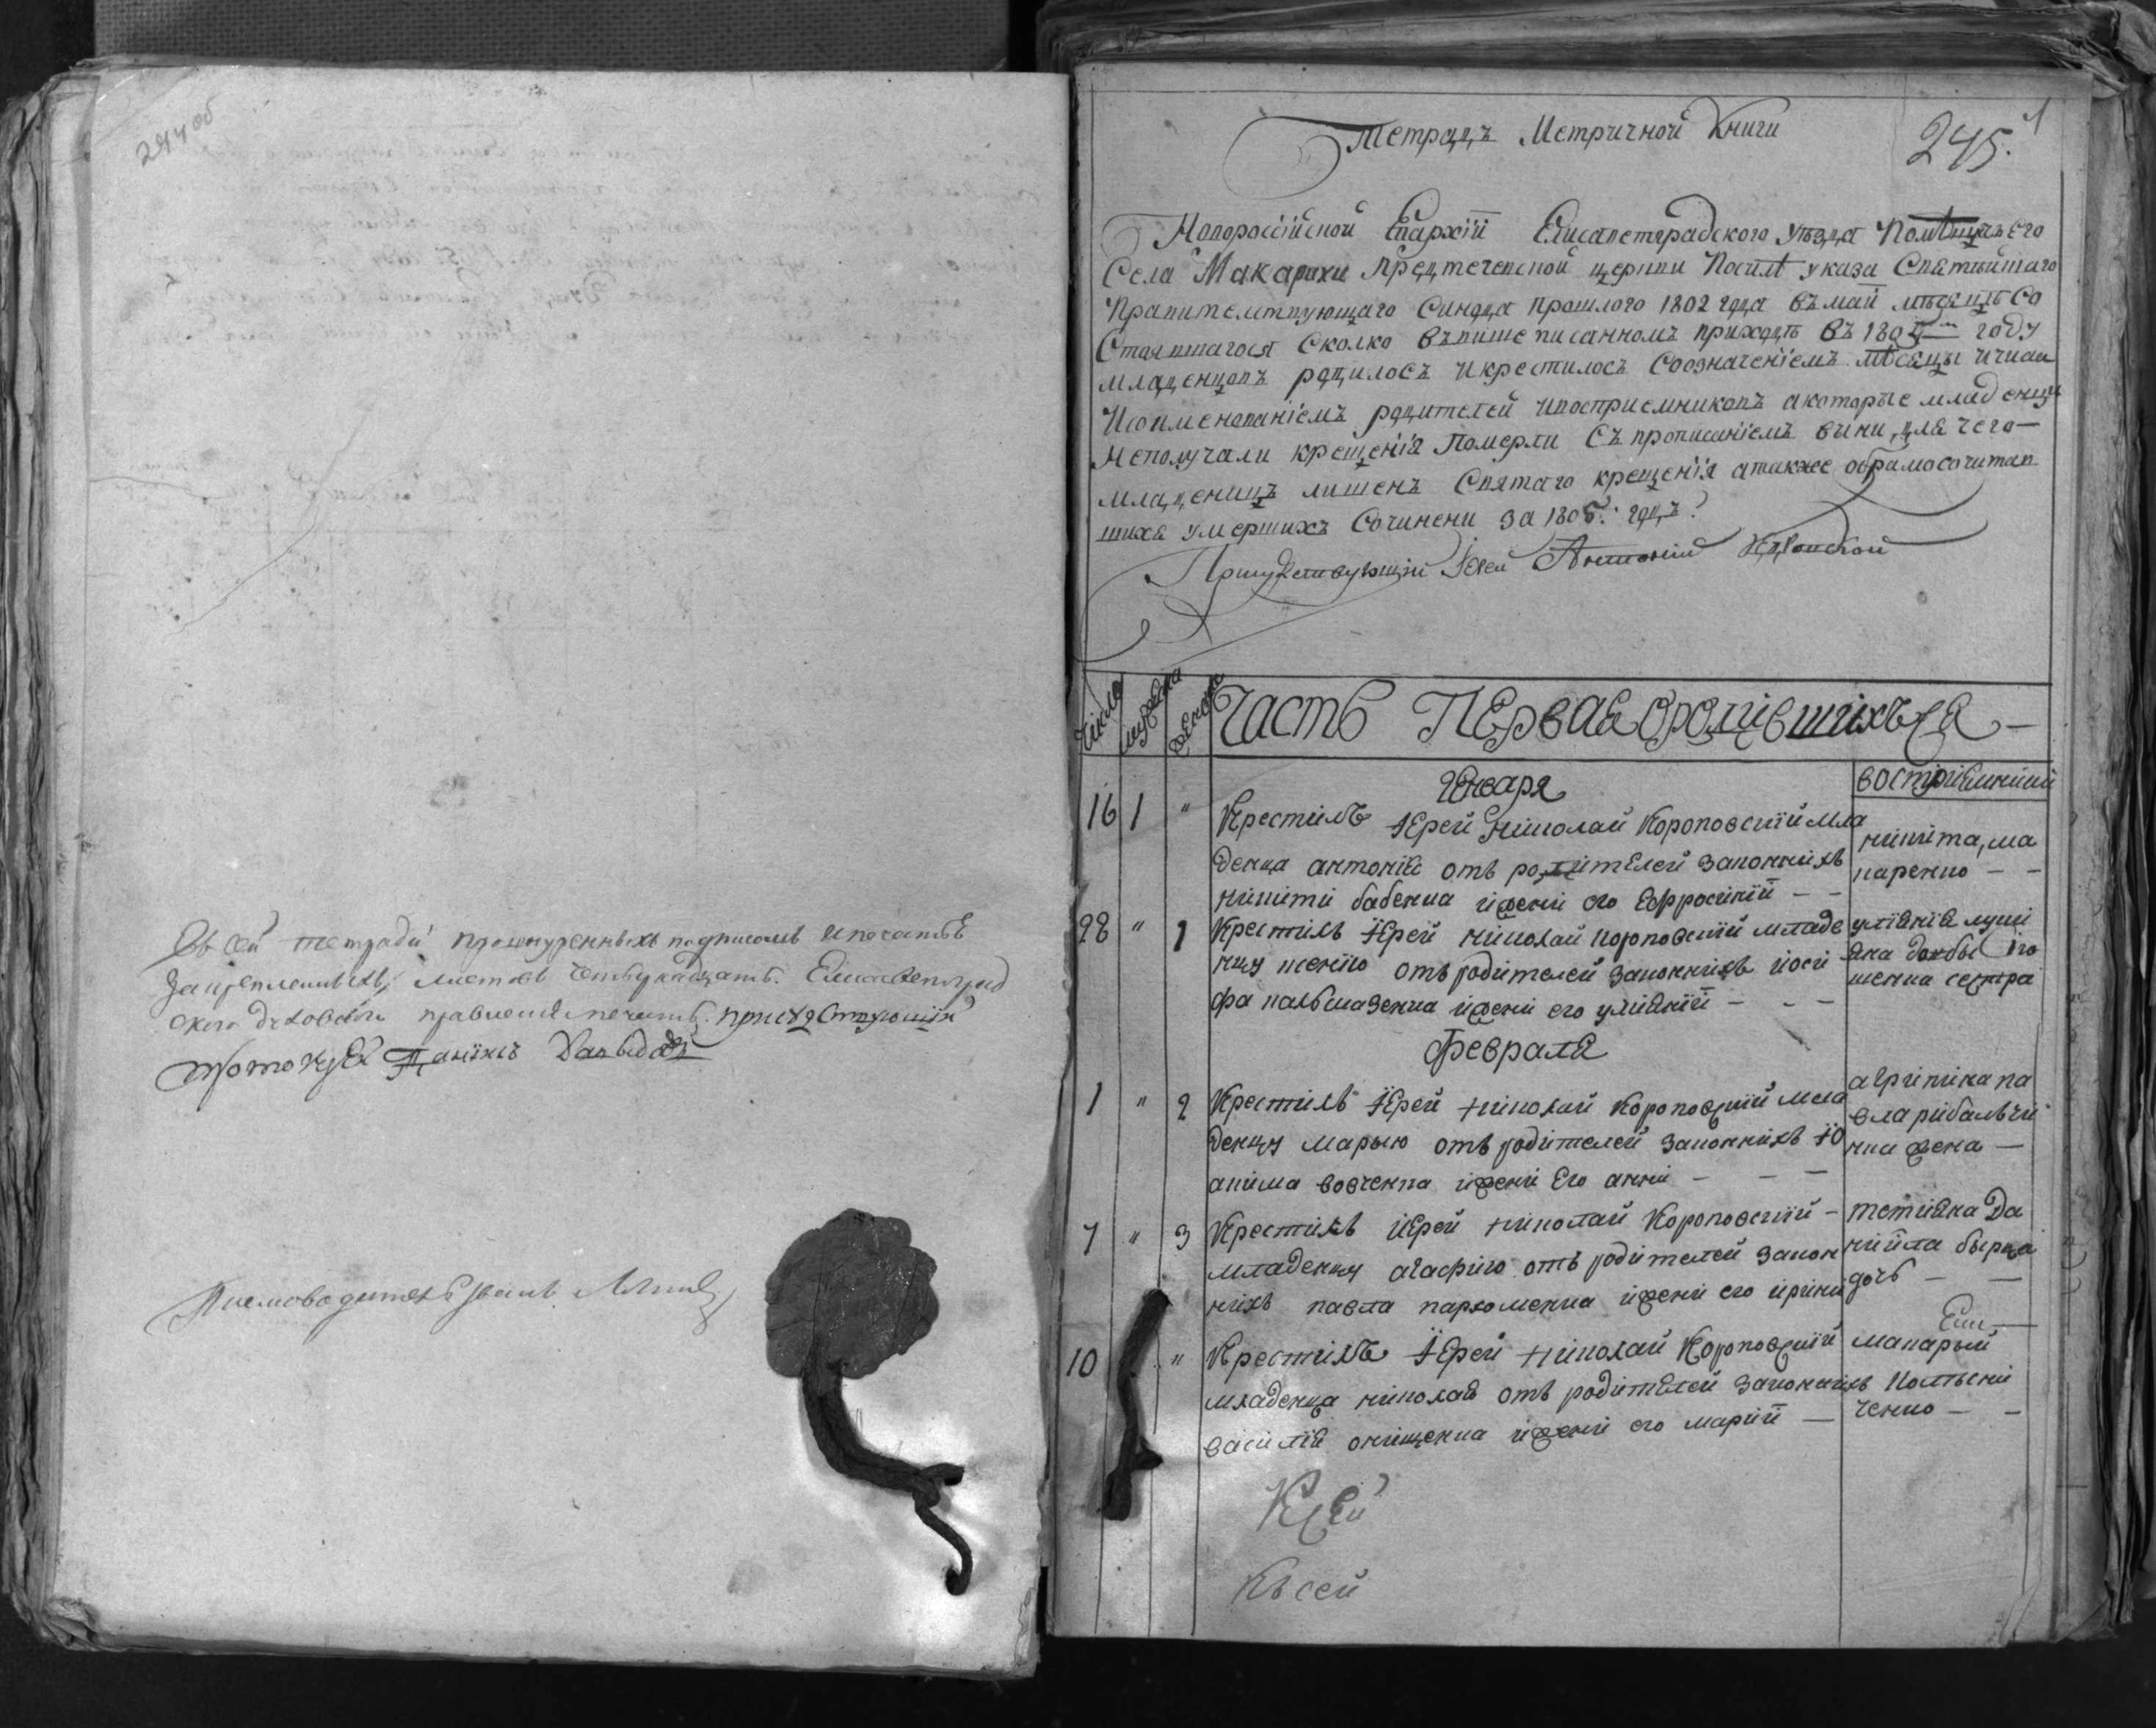 244 об
Въ сей тетради прошнуренныхъ подписомъ и печатьѣ
зацепленныхъ листовъ четырнадцать. Елисаветград
ского духовнаго правления печать. присудствующій
протоіерей Даніилъ
Писмоводитель Іванъ
Тетрадъ Метричной Книги
245.
Новоросcійской Епархіи Елисаветградского уезда Помѣщичъего
Села Макарихи Предтечевской церкви Посилѣ указа Святѣйшаго
Правителствующаго Синода прошлого 1802 года въ май мѣсяцѣ со
стоявшагося сколко въвише писанномъ приходѣ въ 180 году
младенцовъ родилосъ и крестилосъ сообзначеніемъ мѣсяцы и числа
Исоименованіемъ родителей ивосприемниковъ а которые младенцы
неполучали крещенія померли съ прописаніемъ вини, для чего
младеницъ лишенъ святаго крещенія атакже обрачосочитав
шихся умершихъ сочинени за 1805: годъ
Присудствующій Іерей Антоній
Числа
мужеска
женска
Часть Первая ородившихъся
восприемники
Генваря
16 1 " Крестилъ Іерей николай Короповскій мла
денца антонія отъ родителей законнихъ
никити бабенка іжени его Ефросиніи
никита, ма
каренко
28 " 1 Крестилъ Іерей николай короповскій младе
нцу ксенію отъ родителей законнихъ йоси
фа кальмазенка іжени его уліяніи
уліянія луки
яна довбы
шенка сестра
Февраля
1 " 2 Крестилъ Іерей николай Короповскій мла
денцу марью отъ родителей законнихъ Іо
акима вовченка іжени Его анни
агрипина па
вла рибальчи
нка жена
7 " 3 Крестилъ іерей николай Короповскій
младенцу агафію отъ родителей закон
нихъ павла пархоменка іжени его ірини
тетияна Да
ниила бырка
дочь
10 " Крестилъ Іерей николай Короповскій
младенца николая отъ родителей законнихъ
василія онищенка іжени его маріи
макарий
ченко
Къ сей